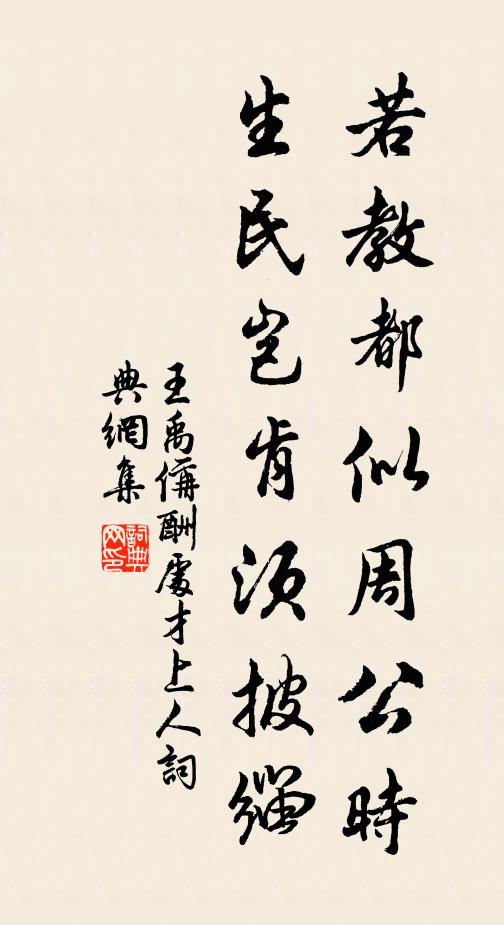 若教都似周公時
生民豈肯須披緇
王禹偁酬處才上人詞
典網集
詞典網印